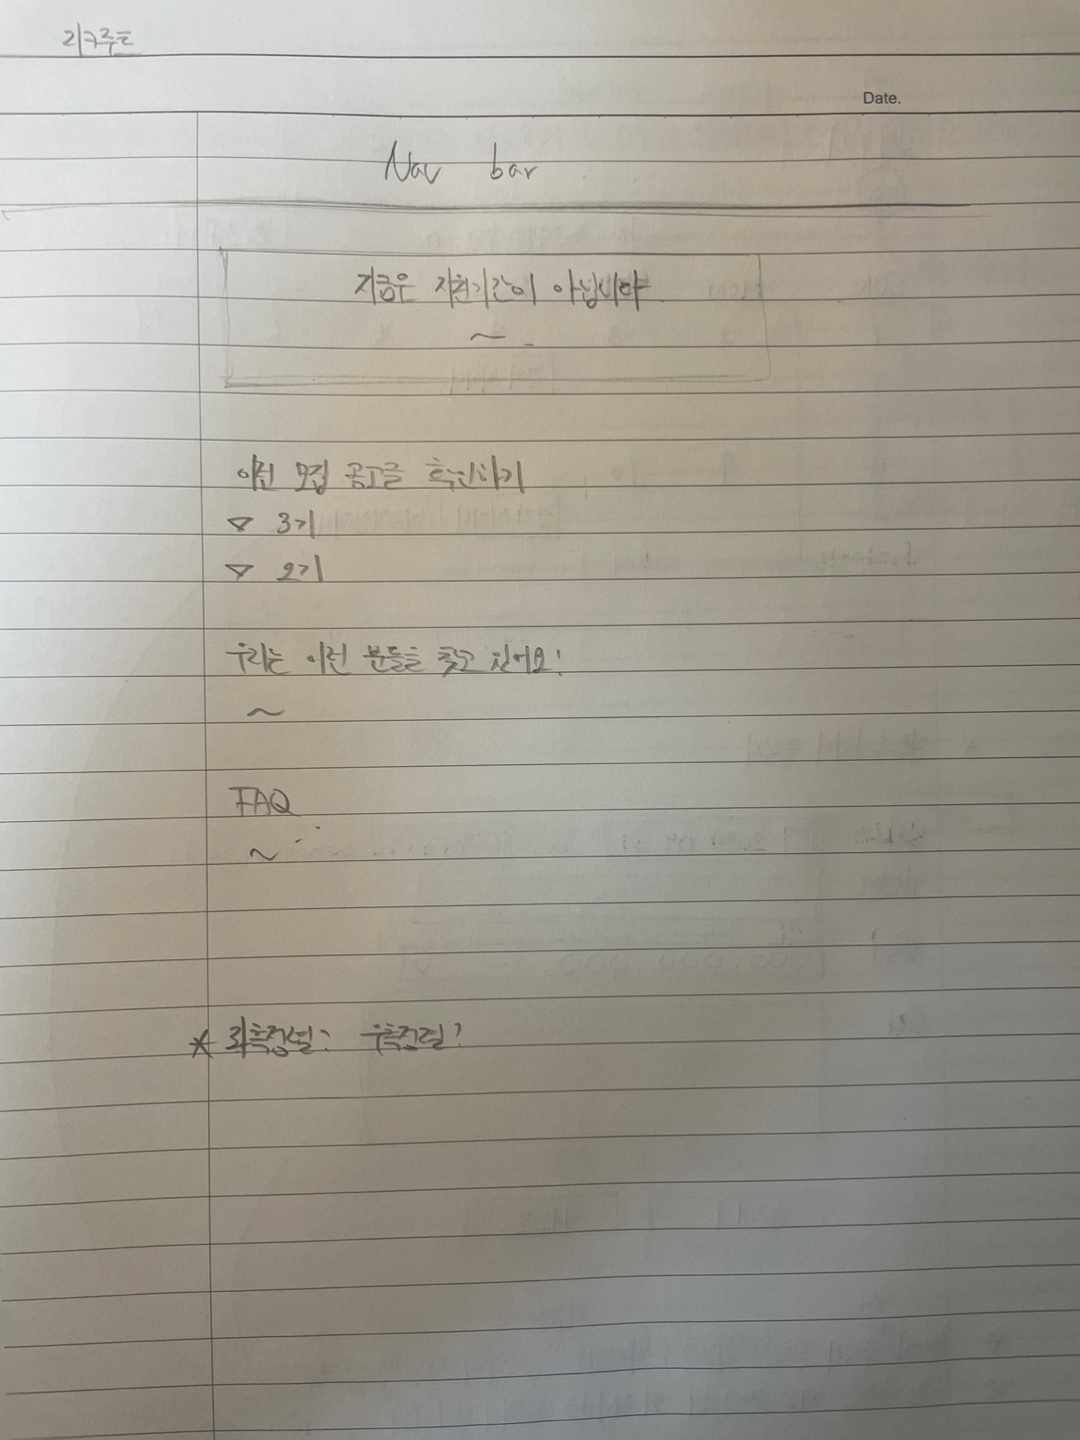 리쿠루트
Date.
Nav bar
지금은 지원기간이 아닙니다
~
이전 모집 공고글 확인하기
▽ 3기
▽ 2기
우리는 이런 분들을 찾고 있어요!
~
FAQ
~
* 좌측정렬? 우측정렬?